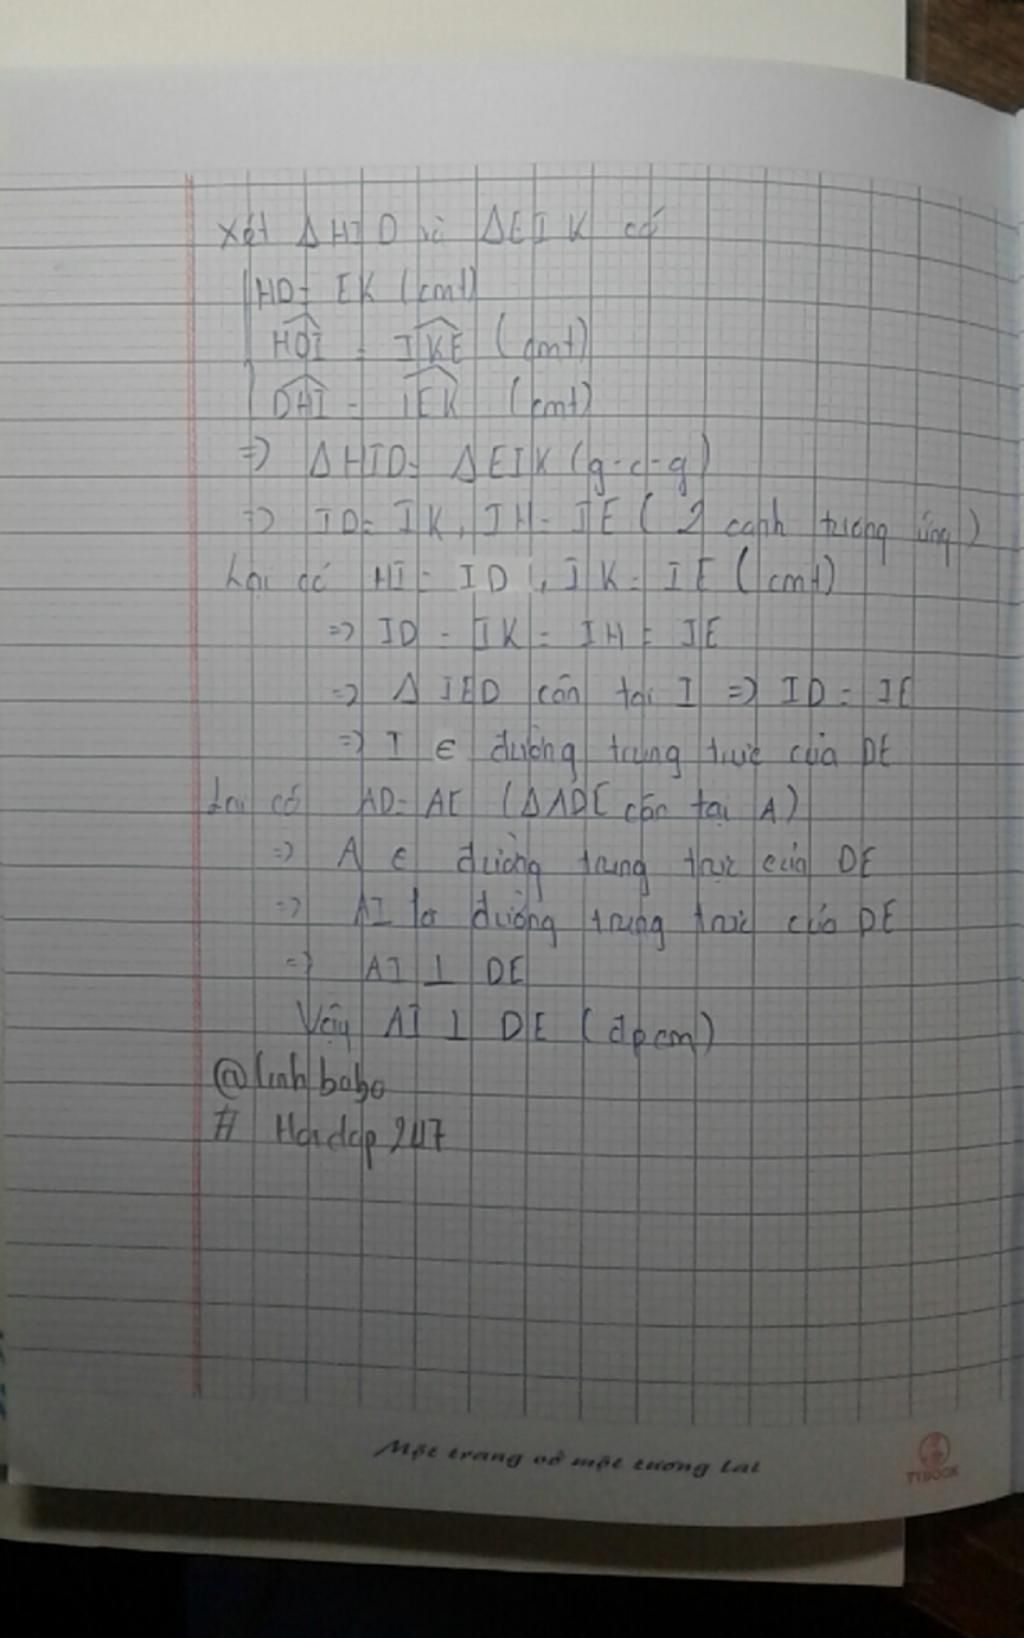 Xét ΔHID và ΔEIK có
HD = EK (cmt)
HDI = IKE (cmt)
DHI = IEK (cmt)
=> ΔHID = ΔEIK (g-c-g)
=> ID = IK, IH = IE (2 cạnh tương ứng)
Lại có HI = ID, IK = IE (cmt)
=> ID = IK = IH = IE
=> ΔIED cân tại I => ID = IE
=> I ∈ đường trung trực của DE
Lại có AD = AE (ΔADE cân tại A)
=> A ∈ đường trung trực của DE
=> AI là đường trung trực của DE
=> AI ⊥ DE
Vậy AI ⊥ DE (đpcm)
@linhbabo
# Hoidap247
Một trang vở một tương lai
TYBOOK